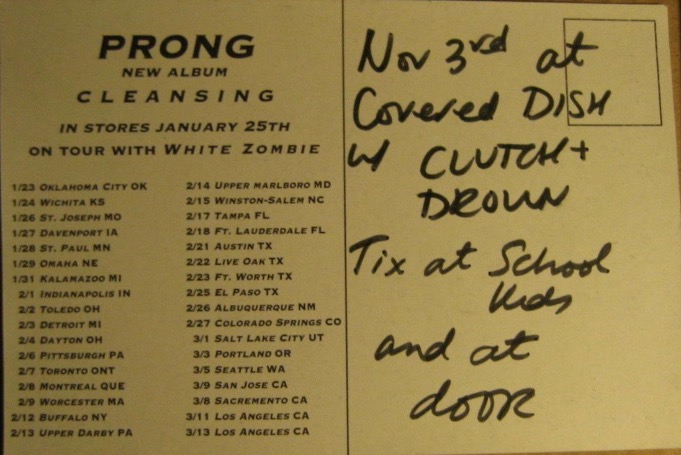 PRONG
NEW ALBUM
CLEANSING
IN STORES JANUARY 25TH
ON TOUR WITH WHITE ZOMBIE
1/23 OKLAHOMA CITY OK
1/24 WICHITA KS
1/26 ST. JOSEPH MO
1/27 DAVENPORT IA
1/28 ST. PAUL MN
1/29 OMAHA NE
1/31 KALAMAZOO MI
2/1 INDIANAPOLIS IN
2/2 TOLEDO OH
2/3 DETROIT MI
2/4 DAYTON OH
2/6 PITTSBURGH PA
2/7 TORONTO ONT
2/8 MONTREAL QUE
2/9 WORCESTER MA
2/12 BUFFALO NY
2/13 UPPER DARBY PA
2/14 UPPER MARLBORO MD
2/15 WINSTON-SALEM NC
2/17 TAMPA FL
2/18 FT. LAUDERDALE FL
2/21 AUSTIN TX
2/22 LIVE OAK TX
2/23 FT. WORTH TX
2/25 EL PASO TX
2/26 ALBUQUERQUE NM
2/27 COLORADO SPRINGS CO
3/1 SALT LAKE CITY UT
3/3 PORTLAND OR
3/5 SEATTLE WA
3/9 SAN JOSE CA
3/8 SACREMENTO CA
3/11 LOS ANGELES CA
3/13 LOS ANGELES CA
Nov 3rd at
Covered DISH
w/ CLUTCH +
DROWN
Tix at School
Kids
and at
door